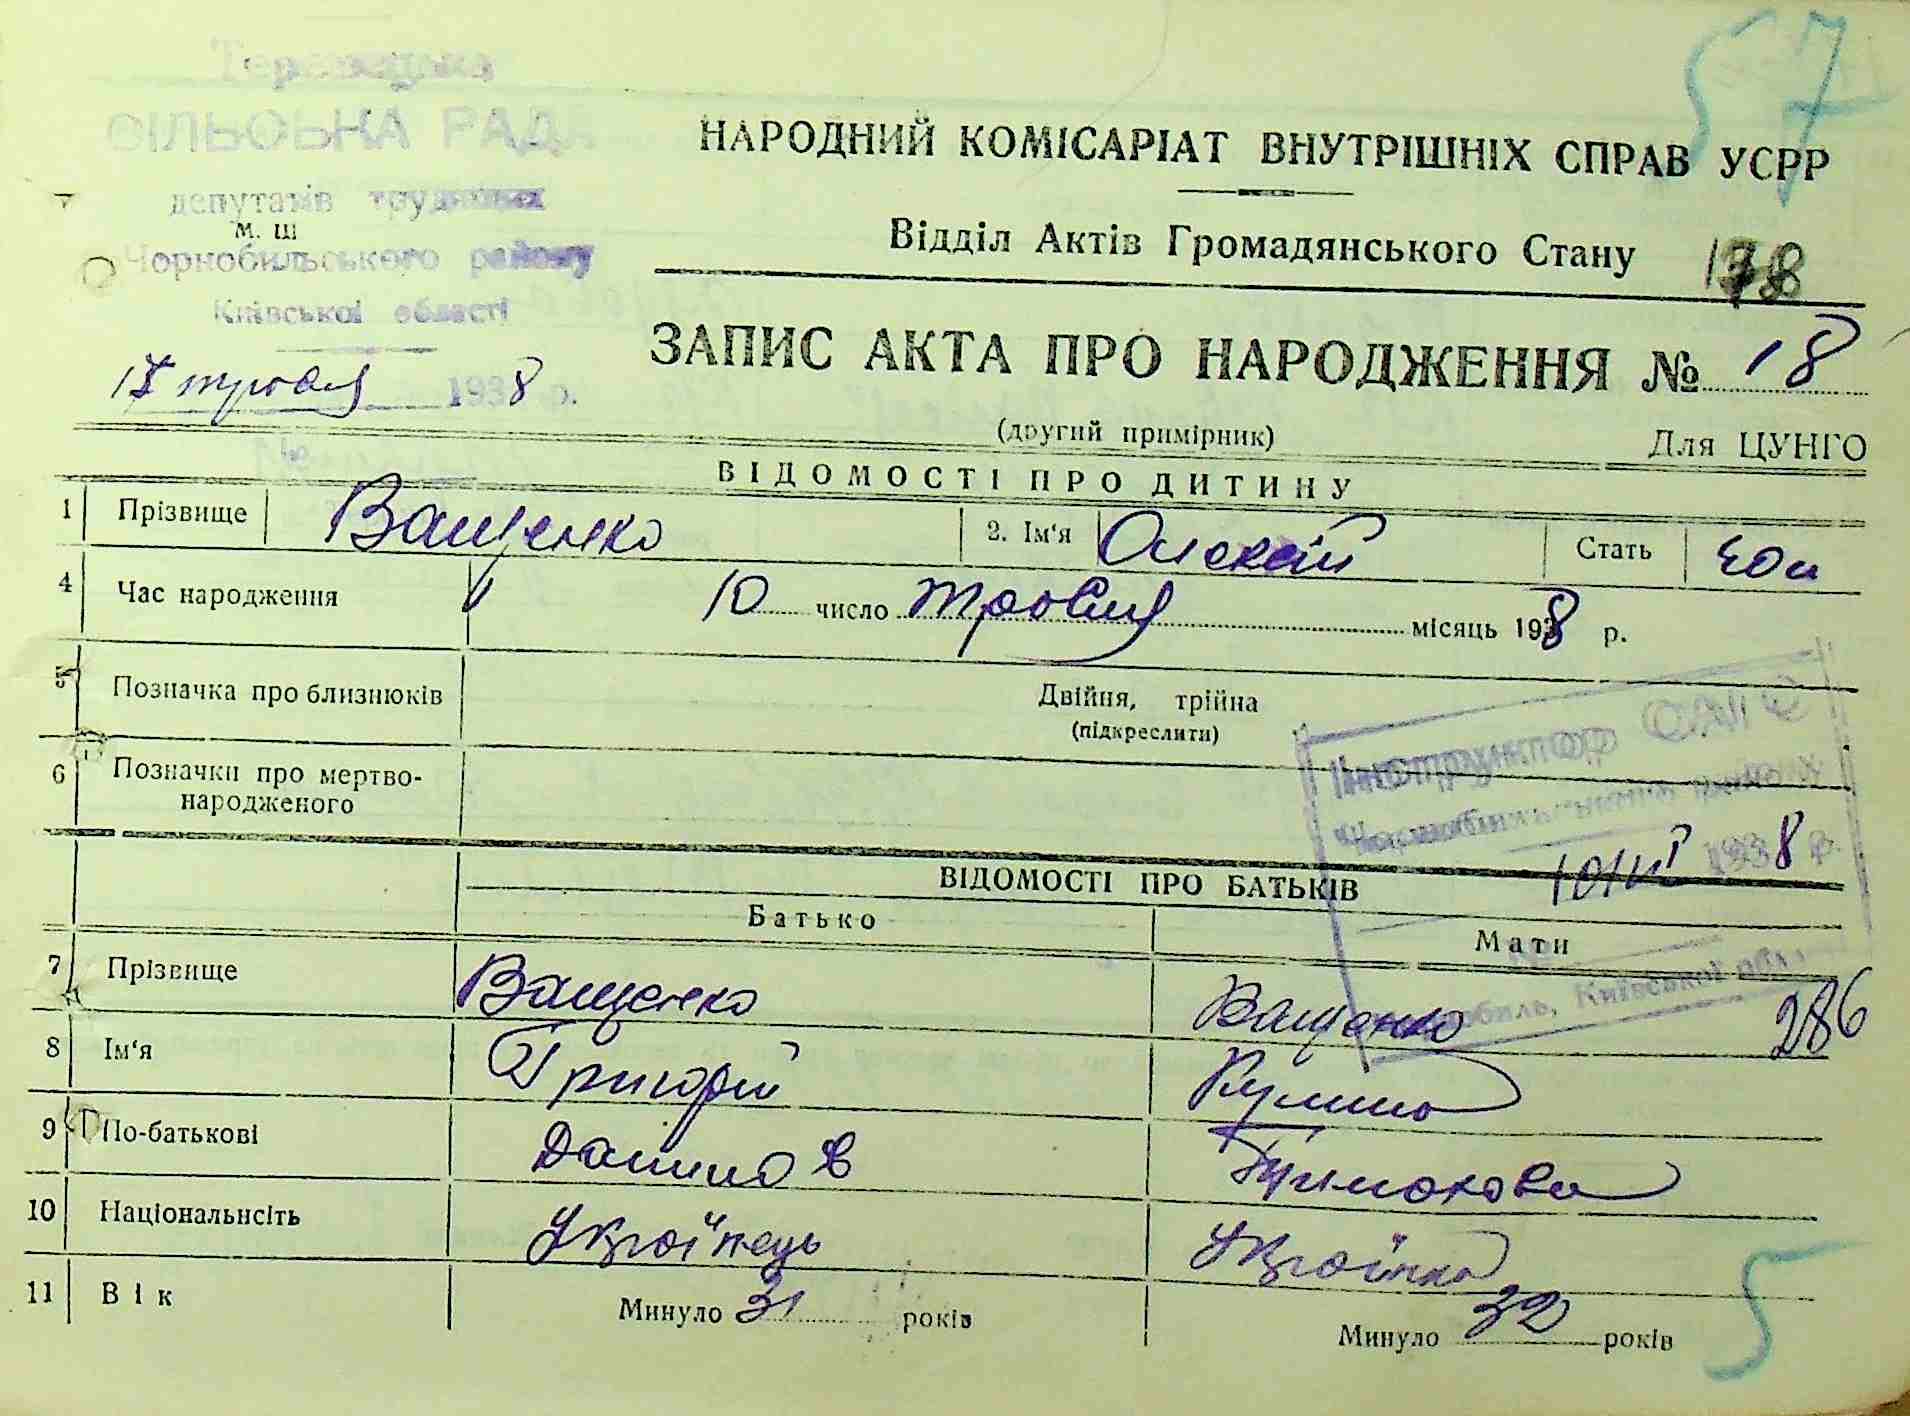 57
СІЛЬСЬКА РАДА
депутатів трудящих
м. ш
Чорнобильського району
Київської області
НАРОДНИЙ КОМІСАРІАТ ВНУТРІШНІХ СПРАВ УСРР
Відділ Актів Громадянського Стану
ЗАПИС АКТА ПРО НАРОДЖЕННЯ № 18
травня 1938 р.
(другий примірник) Для ЦУНГО
ВІДОМОСТІ ПРО ДИТИНУ
1 Прізвище Ващенко 2. Ім'я Олексій Стать чол
4 Час народження 10 число травня місяць 1938 р.
5 Позначка про близнюків Двійня, трійна
(підкреслити)
6 Позначки про мертво-
народженого
Інструктор
1938 р.
Київської обл.
ВІДОМОСТІ ПРО БАТЬКІВ
Батько Мати
7 Прізвище Ващенко Ващенко 286
8 Ім'я Григорій
9 По-батькові Данилов
10 Національнсіть Українець Українка
11 Вік Минуло 31 років Минуло 32 років
5